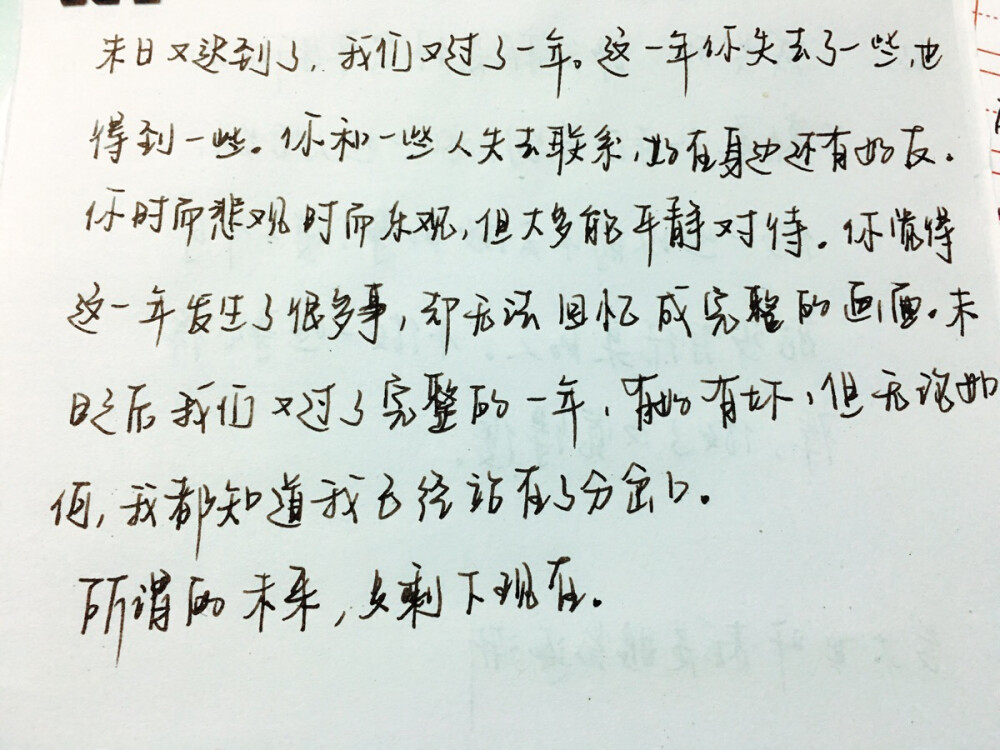 末日又迟到了,我们又过了一年。这一年你失去了一些,也
得到一些。你和一些人失去联系,好在身边还有好友。
你时而悲观时而乐观,但大多能平静对待。你觉得
这一年发生了很多事,却无法回忆成完整的画面。末
日之后我们又过了完整的一年,有好有坏,但无论如
何,我都知道我已经站在了分岔口。
所谓的未来,只剩下现在。